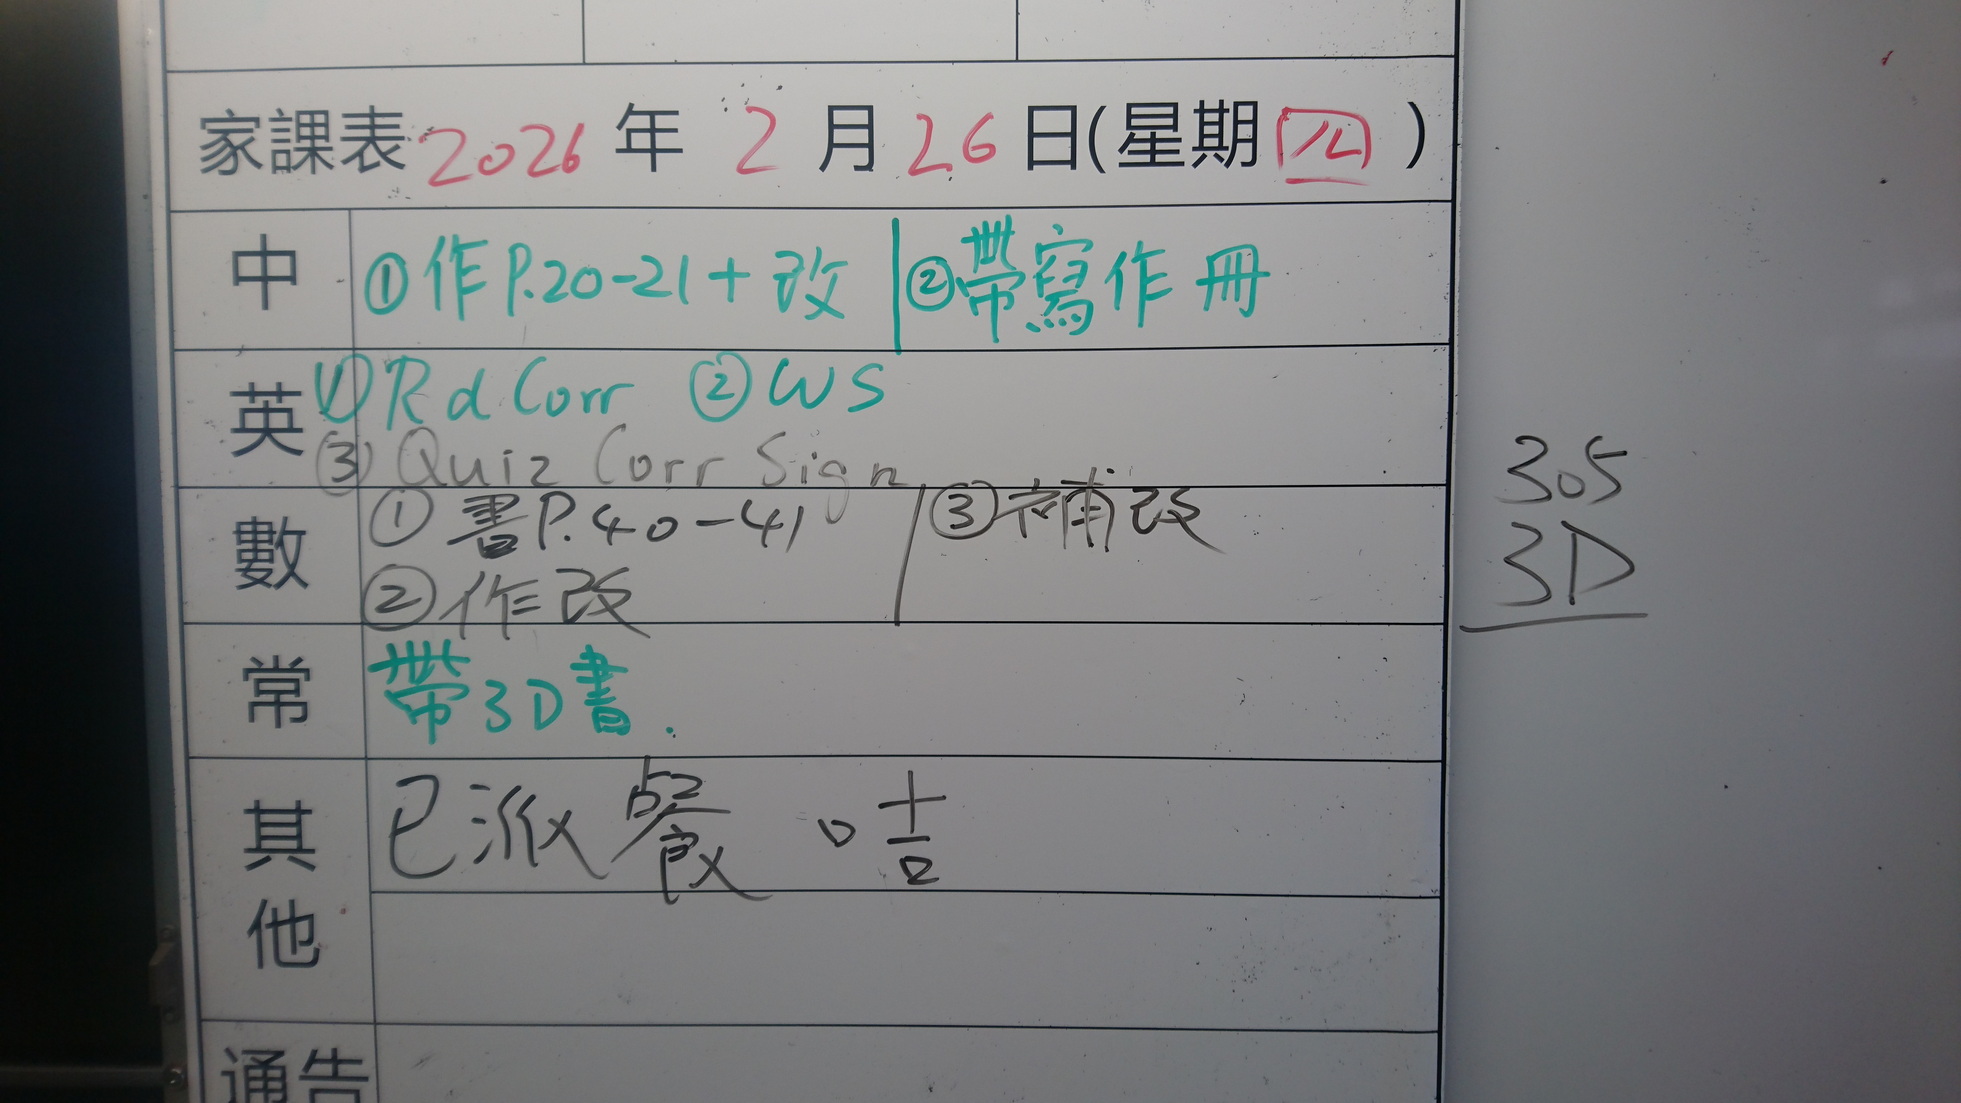 家課表 2026 年 2 月 26 日(星期四)
中 ①作P.20-21+改 | ②帶寫作冊
英 ①Rd Corr ②WS
③Quiz Corr Sign
數 ①書P.40-41 ③補改
②作改
305
3D
常 帶3D書.
其他 已派餐
通告